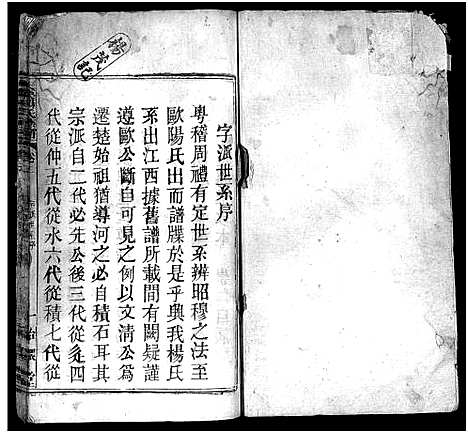 楊茂記
字派世系序
粵稽周禮有定世系辨昭穆之法至
歐陽氏出而譜牒於是乎興我楊氏
系出江西據舊譜所載間有闕疑謹
遵歐公斷自可見之例以文清公為
遷楚始祖猶導河之必自積石耳其
宗派自二代必先公後三代從友四
代從仲五代從水六代從積七代從